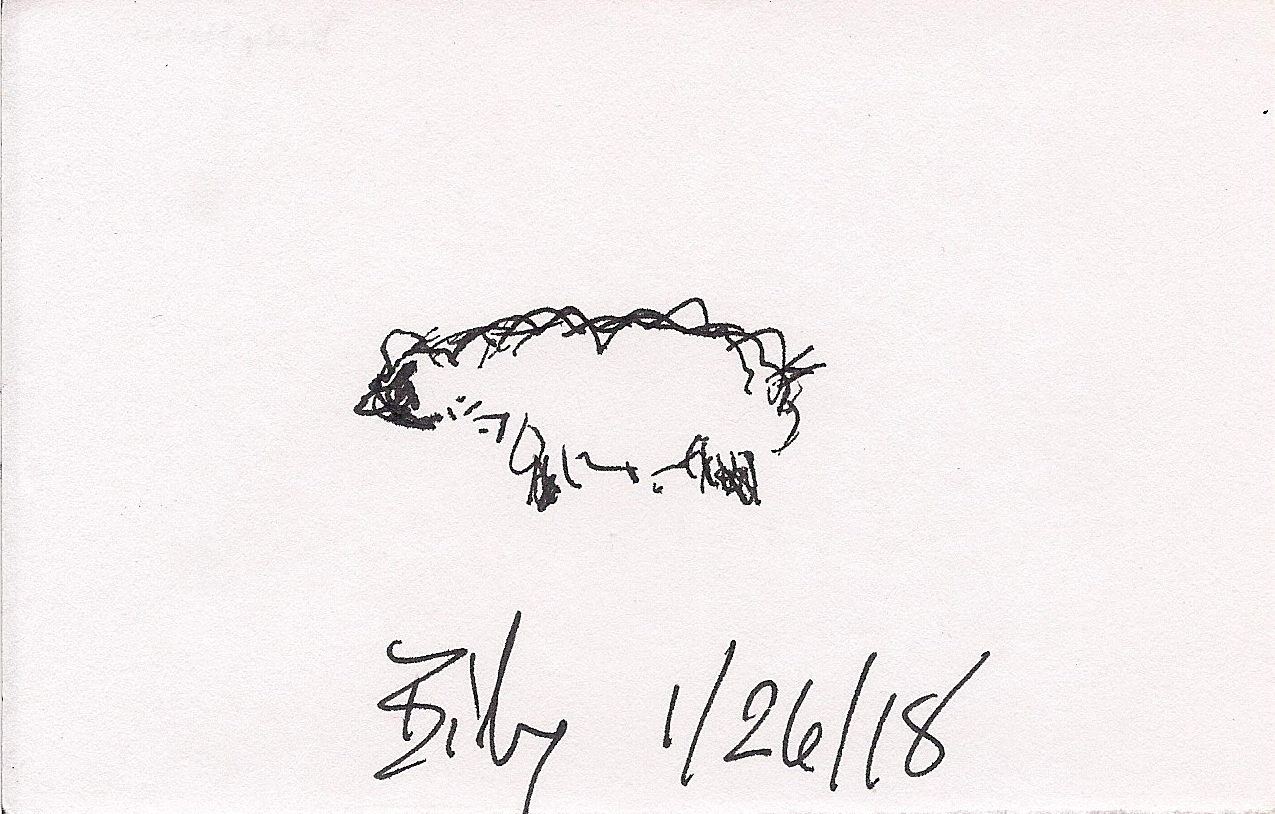 Billy 1/26/18